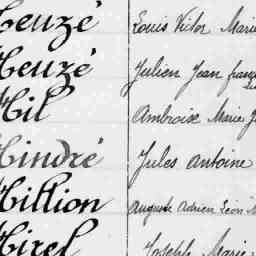 Heuzé Louis Victor Marie
Heuzé Julien Jean franç
Hil Ambroise Marie J
Hindré Jules Antoine
Hillion Auguste Adrien Léon M
Hirel Joseph Marie